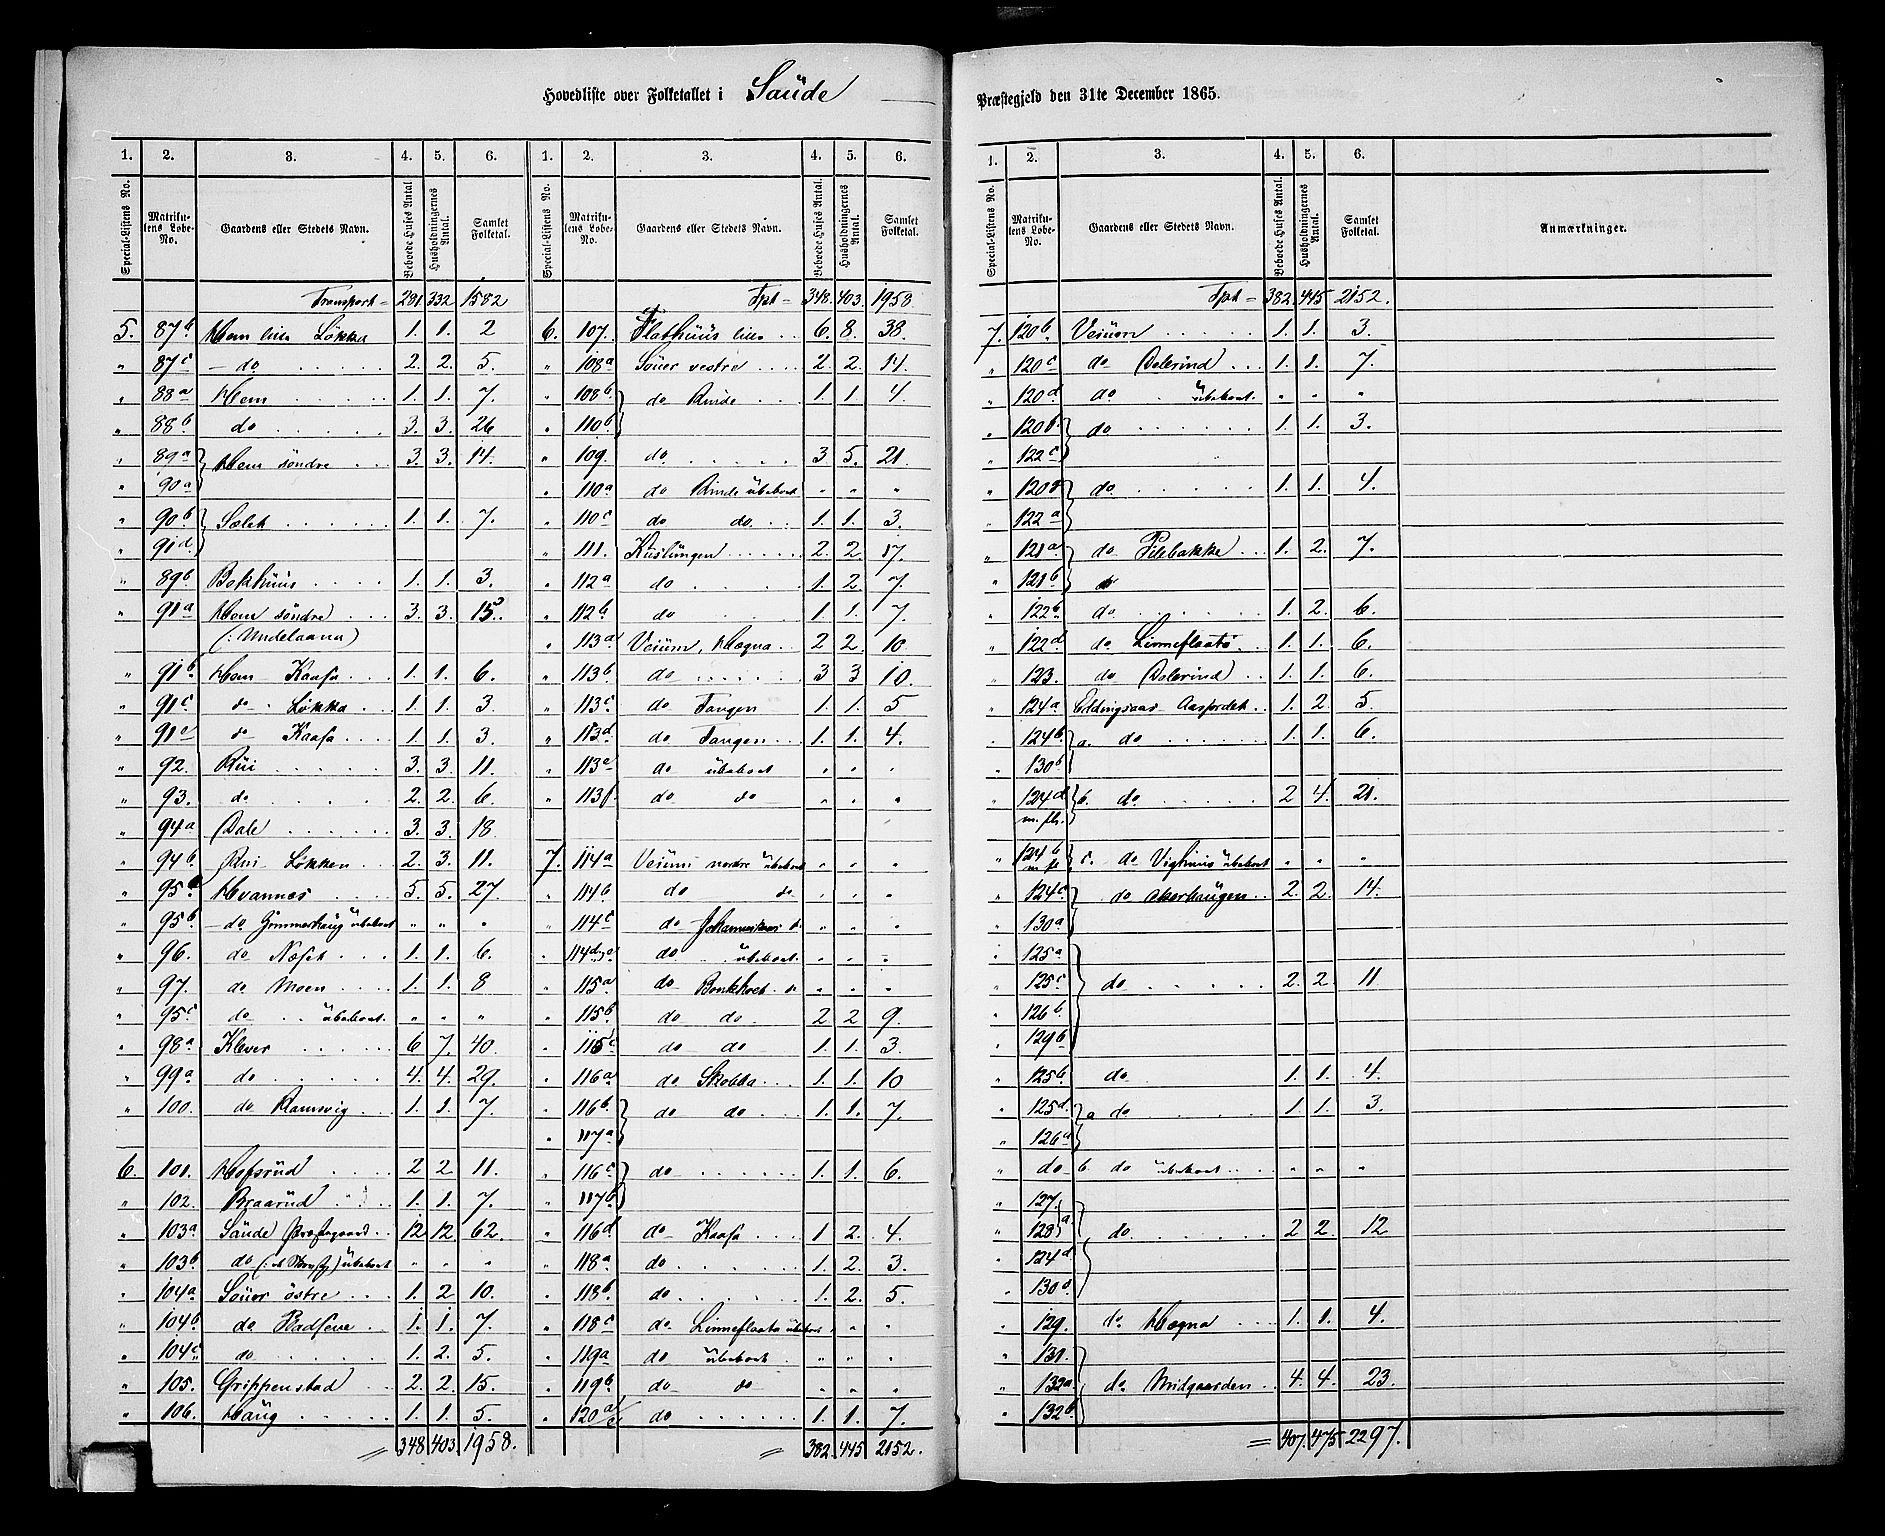 Hovedliste over Folketallet i Saude Præstegjeld den 31te December 1865.
1. 2. 3. 4. 5. 6.
Special-Listens No. Matrikulens Løbe-No. Gaardens eller Stedets Navn. Beboede Huses Antal. Husholdningernes Antal. Samlet Folketal.
Transport = 281. 332 1582
5. 87b Hem lille Løkka 1. 1. 2
" 87c - do 2. 2. 5.
" 88a Hem 1. 1. 7.
" 88b do 3. 3. 26
" 89a } Hem söndre 3. 3. 14.
" 90a
" 90b } Sælek 1. 1. 7.
" 91d
" 89b Bakhuus 1. 1. 3.
" 91a Hem söndre 3. 3. 15.
(: Undelaana)
" 91b Hem Kaasa 1. 1. 6.
" 91c do Løkka 1. 1. 3.
" 91e do Kaasa 1. 1. 3.
" 92. Rui 3. 3. 11.
" 93. do 2. 2. 6.
" 94a Dale 3. 3. 18
" 94b Rui Løkken 2. 3. 11.
" 95a Hvannes 5. 5. 27
" 95b - do Gommerhaug übeboet " " "
" 96. do Næset 1. 1. 6.
" 97. do Moen 1. 1. 8
" 95c do übeboet " " "
" 98a Klever 6 7. 40.
" 99a do 4. 4. 29.
" 100. do Ramvig 1. 1. 7.
6. 101. Hofsrüd 2 2 11.
" 102. Braarüd 1. 1. 7.
" 103a Saude Præstegaard 12 12 62.
" 103b do übeboet " " "
" 104a Souer östre 1. 2 10.
" 104b do Badseve 1. 1. 7.
" 104c do 1. 2. 5.
" 105. Grippenstad 2. 2. 15.
" 106. Haug 1. 1. 5.
= 348 403 1958.
1. 2. 3. 4. 5. 6.
Special-Listens No. Matrikulens Løbe-No. Gaardens eller Stedets Navn. Beboede Huses Antal. Husholdningernes Antal. Samlet Folketal.
Tpt = 348. 403. 1958.
6. 107. Flathuus lille 6. 8. 38.
" 108a Souer vestre 2. 2. 14.
" 108b } do Rinde 1. 1. 4.
" 110b
" 109. do 3 5. 21.
" 110a do Rinde übeboet " " "
" 110c do do 1. 1. 3.
" 111. Kuslungen 2. 2. 17.
" 112a do 1. 2 7.
" 112b do 1. 1. 7.
" 113a Veium, Hægna 2 2. 10
" 113b do 3 3 10.
" 113c do Tangen 1. 1. 5
" 113d do Tangen 1. 1. 4.
" 113e do übeboet " " "
" 113f. do do " " "
7. 114a Veium nordre übeboet " " "
" 114b do do " " "
" 114c do " " "
" 114d, e do übeboet " " "
" 115a do Bonkhoet do " " "
" 115b do do 2 2 9.
" 115c do do 1. 1. 3
" 116a do Skobba 1. 1. 10
" 116b } do do 1. 1. 7.
" 117a
" 116c } do 1. 1. 6.
" 117b
" 116d do Kaasa 1 2. 4.
" 118a do 1. 2 3.
" 118b do 1. 2. 5.
" 118c do Linneflaata übeboet " " "
" 119a do übeboet " " "
" 119b do do " " "
" 120a/c do 1. 1. 7.
= 382. 445 2152.
1. 2. 3. 4. 5. 6.
Special-Listens No. Matrikulens Løbe-No. Gaardens eller Stedets Navn. Beboede Huses Antal. Husholdningernes Antal. Samlet Folketal. Anmærkninger.
Tpt = 382. 445. 2152.
7. 120b Veium 1. 1. 3.
" 120c do Dalerind 1. 1. 7.
" 120d do übeboet " " "
" 120f. } do 1. 1. 3.
" 122c
" 120g } do 1. 1. 4.
" 122a
" 121a } do Pilebakke 1. 2. 7.
" 121b
" 122b do 1. 2 6.
" 122d do Linneflaatö 1. 1. 6.
" 123. do Dalerind 1. 1. 6.
" 124a Eddingsaas Aasfordek 1. 2. 5.
" 124b } a. do 1. 1. 6.
" 130b
" 124d } b. do 2 4. 21.
m. fl.
" 124b m. fl. } c. do Vighuus übeboet " " "
" 124c } do Akerhaugen 2. 2. 14.
" 130a
" 125a
" 125c } do 2. 2. 11
" 126b
" 129b
" 125b do 1. 1. 4.
" 125d } a do 1. 1. 3.
" 126a
" do b. do übeboet " " "
" 127.
" 128a } do 2 2. 12
" 124d
" 130d
" 129. do Hægna 1. 1. 4.
" 131.
" 132a } do Midgaarden 4. 4. 23.
" 132b
= 407. 475 2297.